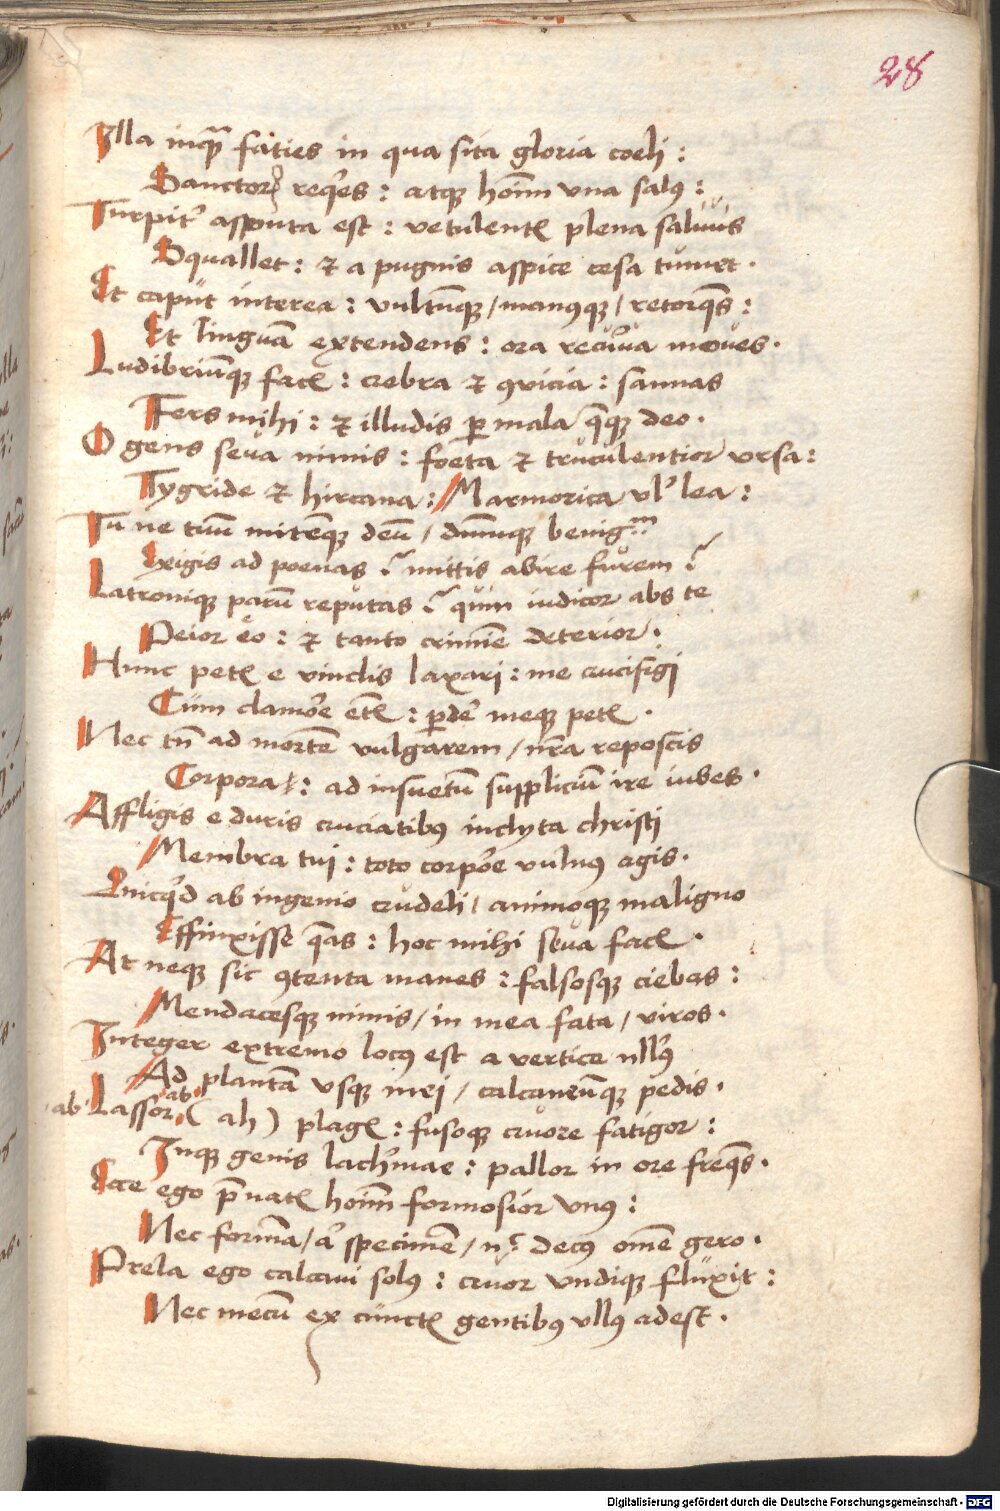 28
Illa inqͣ faties in qua sita gloria coeli :
Sanctorꝝ reqͥes : atqꝫ hoīm vna salꝰ :
Turpitˀ assputa est : vetulentꝭ plena saliuis
Squallet : ⁊ a pugnis aspice cesa tumet .
Et caput interea : vultūqꝫ / manꝰqꝫ / retorqꝫs :
Et linguā extendens : ora recurua moues .
Ludibriūqꝫ facꝭ : crebra ⁊ ꝯuicia : sannas
Fers mihi : ⁊ illudis ꝑ mala qͣqꝫ deo .
O gens seua nimis : foeta ⁊ truculentior vrsa :
Tygride ⁊ hircana : Marmorica vlˀ lea :
Tu ne tuū mitēqꝫ deū / dn̄mqꝫ benigͫ
Exigis ad poenas ? mittis abire furem ?
Latroniqꝫ parū reputas ? quin iudicor abs te
Peior eo : ⁊ tanto crimīe deterior .
Hunc petꝭ e vinclis laxari : me crucifigi
Cum clamōre etꝭ : ꝑderˀ meqꝫ petꝭ .
Nec tn̄ ad mortē vulgarem / nr̄a reposcis
Corpora : ad insuetū suppliciū ire iubes .
Affligis e duris cruciatibꝰ inclyta christi
Membra tui : toto corpōe vulnus agis .
Quicqͥd ab ingenio crudeli / animoqꝫ maligno
Effinxisse qͣas : hoc mihi seua facꝭ .
At neqꝫ sic ꝯtenta manes : falsosqꝫ ciebas :
Mendacesqꝫ nimis / in mea fata / viros .
Integer extremo locꝰ est a vertice nllꝰ
Ad plantā vsqꝫ mei / calcaneūqꝫ pedis .
ab Lassor ab ( ah ) plagꝭ : fusoqꝫ cruore fatigor :
Inqꝫ genis lachͥmae : pallor in ore freqꝫs .
Ecce ego p̄ natꝭ hoīm formosior vnꝰ :
Nec formā / aˀ specimē / decꝰ omē gero .
Prela ego calcaui solꝰ : cruor vndiqꝫ fluxit :
Nec mecū ex cunctꝭ gentibꝰ vllꝰ adest .
Digitalisierung gefördert durch die Deutsche Forschungsgemeinschaft - DFG